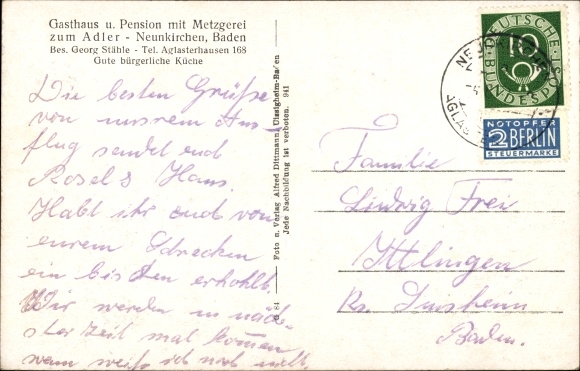 Gasthaus u. Pension mit Metzgerei
zum Adler - Neunkirchen, Baden
Bes. Georg Stähle - Tel. Aglasterhausen 168
Gute bürgerliche Küche
Die besten Grüße
von unsrem Aus-
flug sendet euch
Rosel & Hans.
Habt ihr euch von
eurem Schrecken
ein bischen erhohlt
Wir werden in näch-
ster Zeit mal kommen
wann weiß ich noch nicht.
G 84
Foto u. Verlag Alfred Dittmann, Uissigheim-Baden
Jede Nachbildung ist verboten. 941
DEUTSCHE
BUNDESPOST
10
NOTOPFER
2 BERLIN
STEUERMARKE
Familie
Ludwig Frei
Ittlingen
Krs. Sinsheim
Baden.